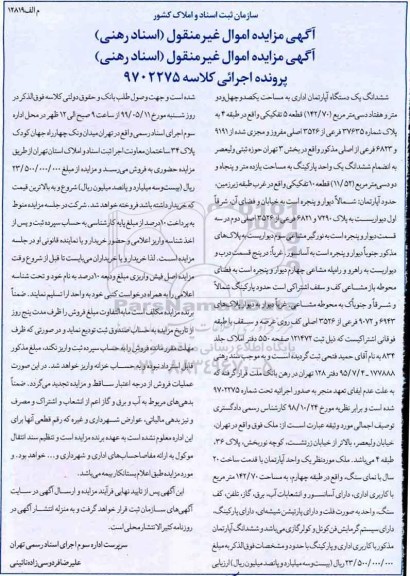 م الف ۱۲۸۱۹
سازمان ثبت اسناد و املاک کشور
آگهی مزایده اموال غیرمنقول (اسناد رهنی)
آگهی مزایده اموال غیرمنقول (اسناد رهنی)
پرونده اجرائی کلاسه ۹۷۰۲۲۷۵
ششدانگ یک دستگاه آپارتمان اداری به مساحت یکصد و چهل‌ودو
متر و هفتاد دسی متر مربع (۱۴۲/۷۰) قطعه ۵ تفکیکی واقع در طبقه ۴ به
پلاک شماره ۳۷۶۳۵ فرعی از ۳۵۲۶ اصلی مفروز و مجزی شده از ۹۱۹۱
و ۶۸۲۳ فرعی از اصلی مذکور واقع در بخش ۳ تهران حوزه ثبتی ولیعصر
به انضمام ششدانگ یک واحد پارکینگ به مساحت یازده متر و پنجاه و
دو دسی متر مربع (۱۱/۵۲) قطعه ۱۰ تفکیکی واقع در غرب طبقه زیرزمین،
حدود آپارتمان: شمالاً دیوار و پنجره است به خیابان و فضای آن شرقاً
اول دیواریست به پلاک ۷۲۹۰ و ۶۸۲۱ فرعی از ۳۵۲۶ اصلی دوم در سه
قسمت دیوار و پنجره است به نورگیر مشاعی سوم دیواریست به پلاک‌های
مذکور جنوباً دیوار و پنجره است به آسانسور، غرباً: در پنج قسمت درب و
دیواریست به راهرو و راه‌پله مشاعی چهارم دیوار و پنجره است به فضای
محوطه باز مشاعی کف و سقف اشتراکی است حدود پارکینگ شمالاً
و شرقاً و جنوباً به محوطه مشاعی، غرباً دیوار به دیوار پلاک‌های
۶۹۴۳ و ۹۰۷۲ فرعی از ۳۵۲۶ اصلی کف روی عرصه و سقف با طبقه
فوقانی اشتراکیست که ذیل ثبت ۱۲۱۴۷۲ صفحه ۵۵۰ دفتر املاک جلد
۸۳۴ به نام آقای حمید فتحی ثبت گردیده است و به موجب سند رهنی
۱۷۷۸۸۸ - ۹۵/۷/۴ دفتر ۱۲۸ تهران در رهن بانک ملت قرار گرفته که
به علت عدم ایفای تعهد منجر به صدور اجرائیه تحت شماره ۹۷۰۲۲۷۵
شده است و برابر نظریه مورخ ۹۸/۱۰/۲۴ کارشناس رسمی دادگستری
توصیف اجمالی مورد وثیقه عبارت است از: ملک فوق واقع در تهران،
خیابان ولیعصر، بالاتر از خیابان زرتشت، کوچه نوربخش، پلاک ۳۶،
طبقه ۴ می‌باشد. ملک موردنظر یک واحد آپارتمان با قدمت ساخت ۲۰
سال با نمای سنگ، واقع در طبقه چهارم، به مساحت ۱۴۲/۷۰ متر مربع
با کاربری اداری، دارای آسانسور و انشعابات آب، برق، گاز، تلفن، کف
سنگ، واحد به صورت فلت و دارای پارتیشن شیشه‌ای، دارای پارکینگ،
دارای سیستم گرمایش فن کوئل و کولر گازی می‌باشد و ششدانگ آپارتمان
مذکور با کاربری اداری و پارکینگ با حدود و مشخصات فوق‌الذکر به مبلغ
۲۳/۵۰۰/۰۰۰/۰۰۰ ریال (بیست‌وسه میلیارد و پانصد میلیون ریال) ارزیابی
شده است و جهت وصول طلب بانک و حقوق دولتی کلاسه فوق‌الذکر در
روز شنبه مورخ ۹۹/۰۵/۱۱ از ساعت ۹ صبح الی ۱۲ ظهر در محل اداره
سوم اجرای اسناد رسمی واقع در تهران میدان ونک چهارراه جهان کودک
پلاک ۳۴ ساختمان معاونت اجرا ثبت اسناد و املاک استان تهران از طریق
مزایده حضوری به فروش می‌رسد و مزایده از مبلغ ۲۳/۵۰۰/۰۰۰/۰۰۰
ریال (بیست‌وسه میلیارد و پانصد میلیون ریال) شروع و به بالاترین قیمت
که خریدار داشته باشد فروخته خواهد شد. شرکت در جلسه مزایده منوط
به پرداخت ۱۰ درصد از مبلغ پایه کارشناسی به حساب سپرده ثبت و پس از
اخذ شناسه واریز اعلامی و حضور خریدار و یا نماینده قانونی او در جلسه
مزایده است. لذا خریدار و یا خریداران می‌بایست تا قبل از شروع وقت
مزایده اصل فیش واریزی مبلغ ودیعه ۱۰ درصد به نام خود و تحت شناسه
اعلامی را به همراه درخواست کتبی خود به واحد اجرا تسلیم نمایند. ضمناً
برنده مزایده مکلف است مابه‌التفاوت مبلغ فروش را ظرف مدت پنج روز
از تاریخ مزایده به حساب صندوق ثبت تودیع نماید و در صورتی که ظرف
مهلت مقرر مانده فروش را به حساب سپرده ثبت واریز نکند، مبلغ مذکور
قابل استرداد نبوده و به حساب خزانه واریز خواهد شد. در این صورت
عملیات فروش از درجه اعتبار ساقط و مزایده تجدید می‌گردد. ضمناً
بدهی‌های مربوط به آب و برق و گاز اعم از انشعاب و اشتراک و مصرف
و نیز بدهی مالیاتی، عوارض شهرداری و غیره که رقم قطعی آنها برای
این اداره معلوم نشده است به عهده برنده مزایده است و تنظیم سند انتقال
موکول به ارائه مفاصاحساب‌های اداری و شهرداری و... خواهد بود. و
مورد مزایده طبق اعلام بستانکار بیمه می‌باشد.
این آگهی پس از تایید نهایی فرآیند مزایده و ارسال آگهی در سایت
آگهی‌های سازمان ثبت قرار خواهد گرفت و به منزله انتشار آگهی در
روزنامه کثیرالانتشار محلی است.
سرپرست اداره سوم اجرای اسناد رسمی تهران
علیرضا فردوسی زاده نائینی